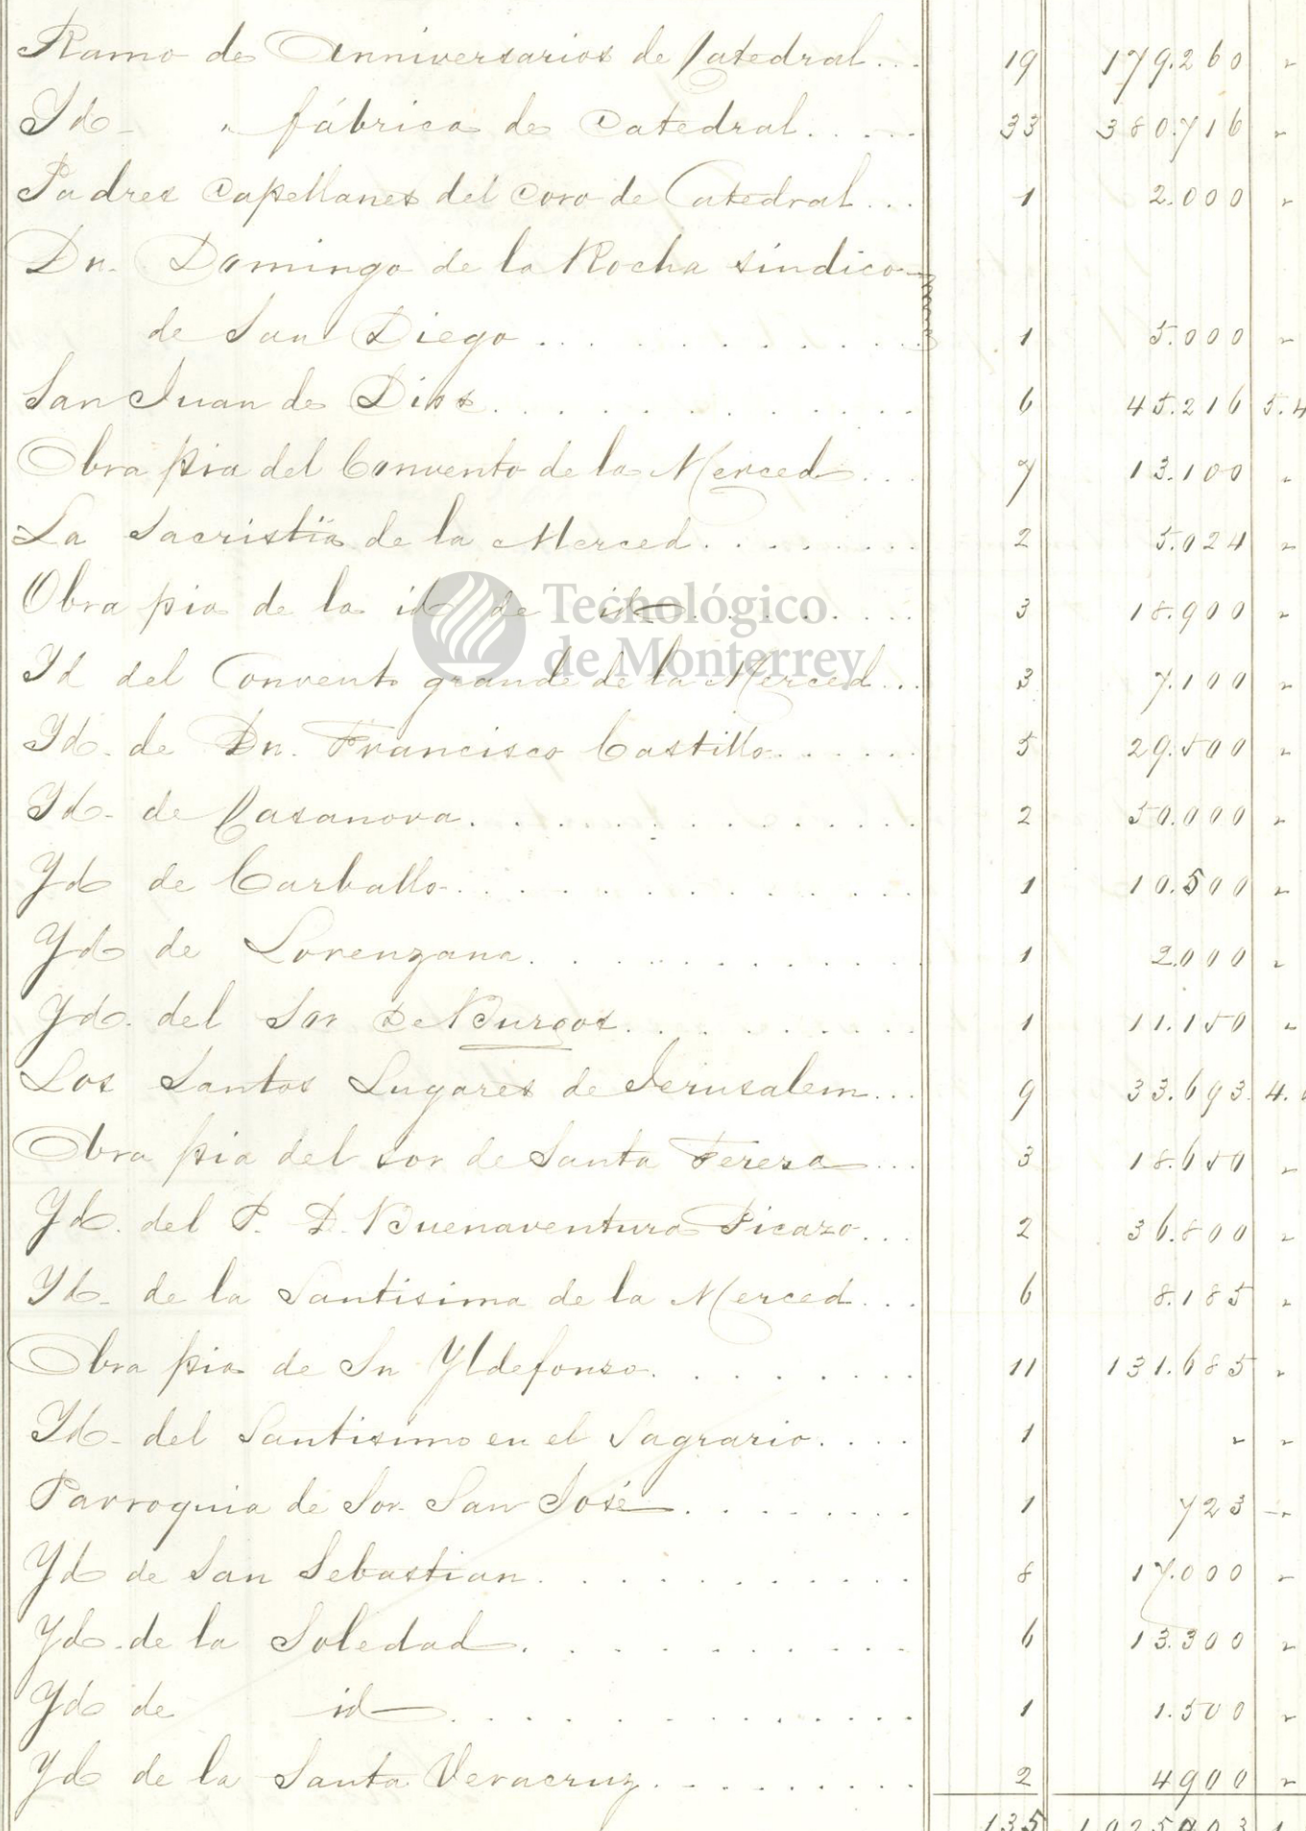 Ramo de Anniversarios de Catedral... 19 179.260 "
Id " fábrica de Catedral..... 33 380.716 "
Padres Capellanes del Coro de Catedral... 1 2.000 "
Dn. Domingo de la Rocha síndico
de San Diego............. 1 5.000 "
San Juan de Dios............. 6 45.216 5.4
Obra pia del Convento de la Merced... 7 13.100 "
La Sacristia de la Merced........ 2 5.024 "
Obra pia de la id de id........ 3 18.900 "
Id del Convento grande de la Merced.. 3 7.100 "
Yd. de Dn. Francisco Castillo...... 5 29.500 "
Yd. de Casanova.............. 2 50.000 "
Yd de Carballo.............. 1 10.500 "
Yd de Lorenzana............. 1 2.000 "
Yd. del Sor De Burgos.......... 1 11.150 "
Los Santos Lugares de Jerusalem... 9 33.693. 4.
Obra pia del sor de Santa Teresa... 3 18.650 "
Yd. del P. D. Buenaventura Picazo... 2 36.800 "
Yd. de la Santisima de la Merced... 6 8.185 "
Obra pia de Sn Yldefonso......... 11 131.685 "
Yd. del Santisimo en el Sagrario.... 1 " "
Parroquia de Sor. San José........ 1 723 "
Yd de San Sebastian............ 8 17.000 "
Yd. de la Soledad............. 6 13.300 "
Yd de id............... 1 1.500 "
Yd de la Santa Veracruz......... 2 4900 "
135
Tecnológico
de Monterrey